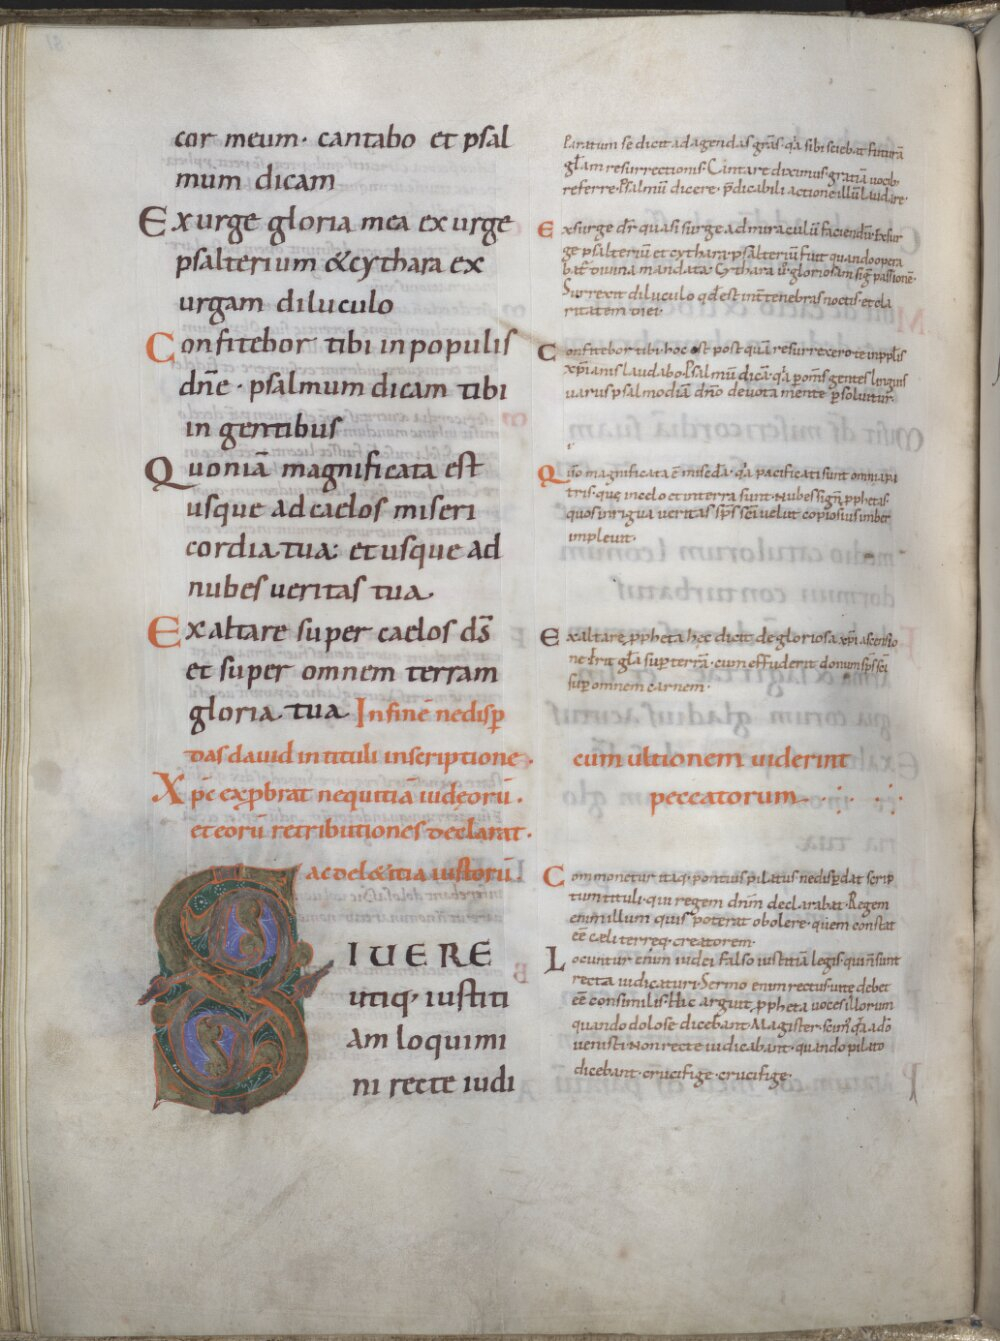 cor meum· cantabo et psal
mum dicam
Exurge gloria mea exurge
psalterium &cythara ex
urgam diluculo
Confitebor tibi inpopulis
dñe· psalmum dicam tibi
in gentibus
Quoniã magnificata est
usque adcaelos miseri
cordia tua: et usque ad
nubes ueritas tua.
Exaltare super caelos ds̄
et super omnem terram
gloria tua Infinẽ nedisp̱
das dauid intituli inscriptione·
Xp̄c exp̱brat nequitiã iudęorũ·
et eorũ retributiones declarat·
ac del&itia iustorũ·
SIUERE
utiq· iustiti
am loquimi
ni recte iudi
Paratum se dicit ad agendas grãs· q̃a sibi sciebat futurã
gl̃am resurrectionis· Cantare diximus gratiã uocib;
referre· Psalmũ dicere· p̄dicabili actione illũ laudare·
Exsurge dr̃ quasi surge admiraculũ faciendũ· Exsur
ge psalteriũ et cythara· psalteriũ fuit quando opera
bat̃ diuina mandata· Cythara ũ gloriosam sig̃ passionẽ·
Surrexit diluculo qd̃ est int̃ tenebras noctis· et cla
ritatem diei·
Confitebor tibi hoc est postquã resurrexero te inpp̱lis
xp̄ianis laudabo· Psalmũ dicã· q̃a p̱ om̃s gentes linguis
uariis psalmodiã dñ̃o deuota mente p̱soluitur·
Qm̃o magnificata ẽ miseda· q̃a pacificati sunt omnia pa
tris· que incelo et interra sunt· Nubes sig̃ p̱phetas·
quos inrigua ueritas sp̄s sc̃i uelut copiosus imber
impleuit·
Exaltare, p̱pheta hoc dicit de gloriosa xp̄i ascensio
ne· Erit gl̃a sup̱ terrã· cum effuderit donum sp̄s sc̃i
sup̱ omnem carnem·
cum ultionem uiderint
peccatorum·
Commonetur itaq; pontius pilatus nedisp̱dat scrip
tum tituli· qui regem dnm̃ declarabat· Regem
enim illum quis poterat abolere· quem constat
eẽ cæli terreq; creatorem·
Locuntur enim iudei falso iustitiã legis· qui ñ sunt
recta iudicaturi· Sermo enim rectus uite debet
eẽ consimilis· Hic arguit p̱pheta uoces illorum
quando dolose dicebant· Magister· scim; q̃a a dõ
uenisti· Non recte iudicabant· quando pilato
dicebant· crucifige· crucifige·